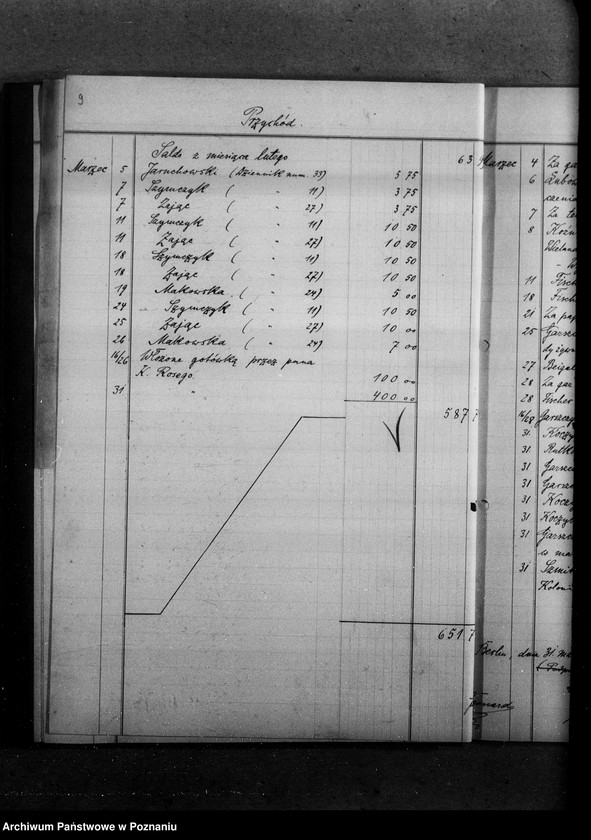 9
Przychód.
Saldo z miesiąca lutego 63
Marzec 5 Jaruchowski (Dziennik num. 35) 5 75
7 Szymczyk ( " 11) 3 75
7 Zając ( " 27) 3 75
11 Szymczyk ( " 11) 10 50
11 Zając ( " 27) 10 50
18 Szymczyk ( " 11) 10 50
18 Zając ( " 27) 10 50
19 Małkowska ( " 24) 5 00
24 Szymczyk ( " 11) 10 50
25 Zając ( " 27) 10 00
26 Małkowska ( " 24) 7 00
14/26 Włożone gotówką przez pana
K. Rosego. 100 00
31 " 400 00
587 7
651 7
Marzec 4 Za ga
6
7 Za te
8
11 Fisch
18 Fisch
21 Za pap
25 Garsze
27
28 Za gaz
28 Fischer
14/28 Garszczy
31 Koczy
31 Rutko
31 Garsze
31 Garsz
31 Koczy
31 Koczyk
31 Garsze
w ma
31
Berlin, dnia 31. ma
Archiwum Państwowe w Poznaniu